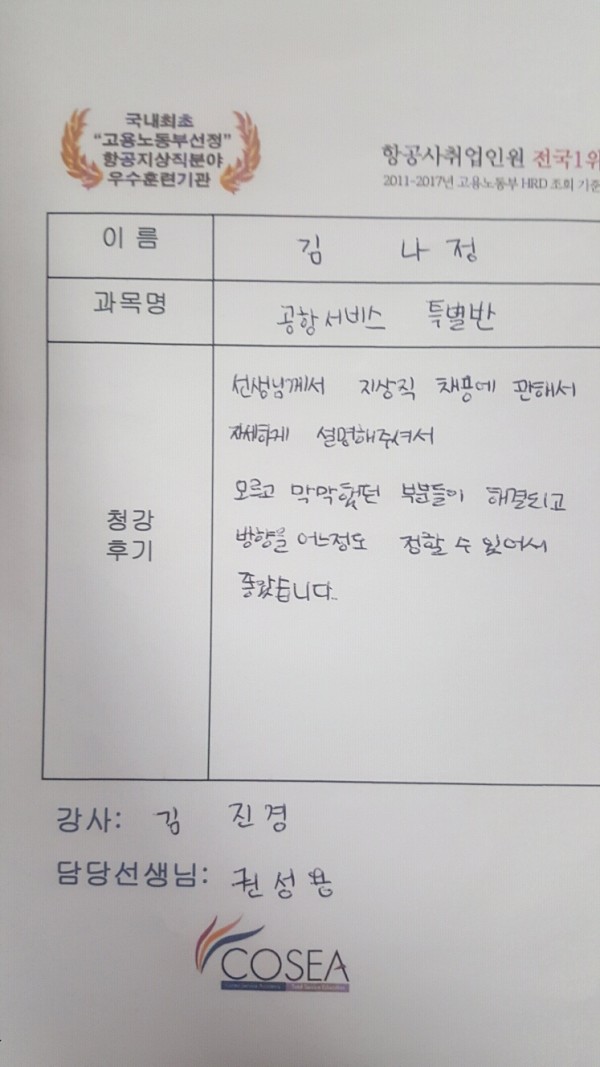 국내최초
"고용노동부선정"
항공지상직분야
우수훈련기관
항공사취업인원 전국1위
2011-2017년 고용노동부 HRD 조회 기준
이 름
김 나 정
과목명
공항서비스 특별반
청강
후기
선생님께서 지상직 채용에 관해서
자세하게 설명해주셔서
모르고 막막했던 부분들이 해결되고
방향을 어느정도 정할 수 있어서
좋았습니다.
강사: 김 진경
담당선생님: 권성용
COSEA